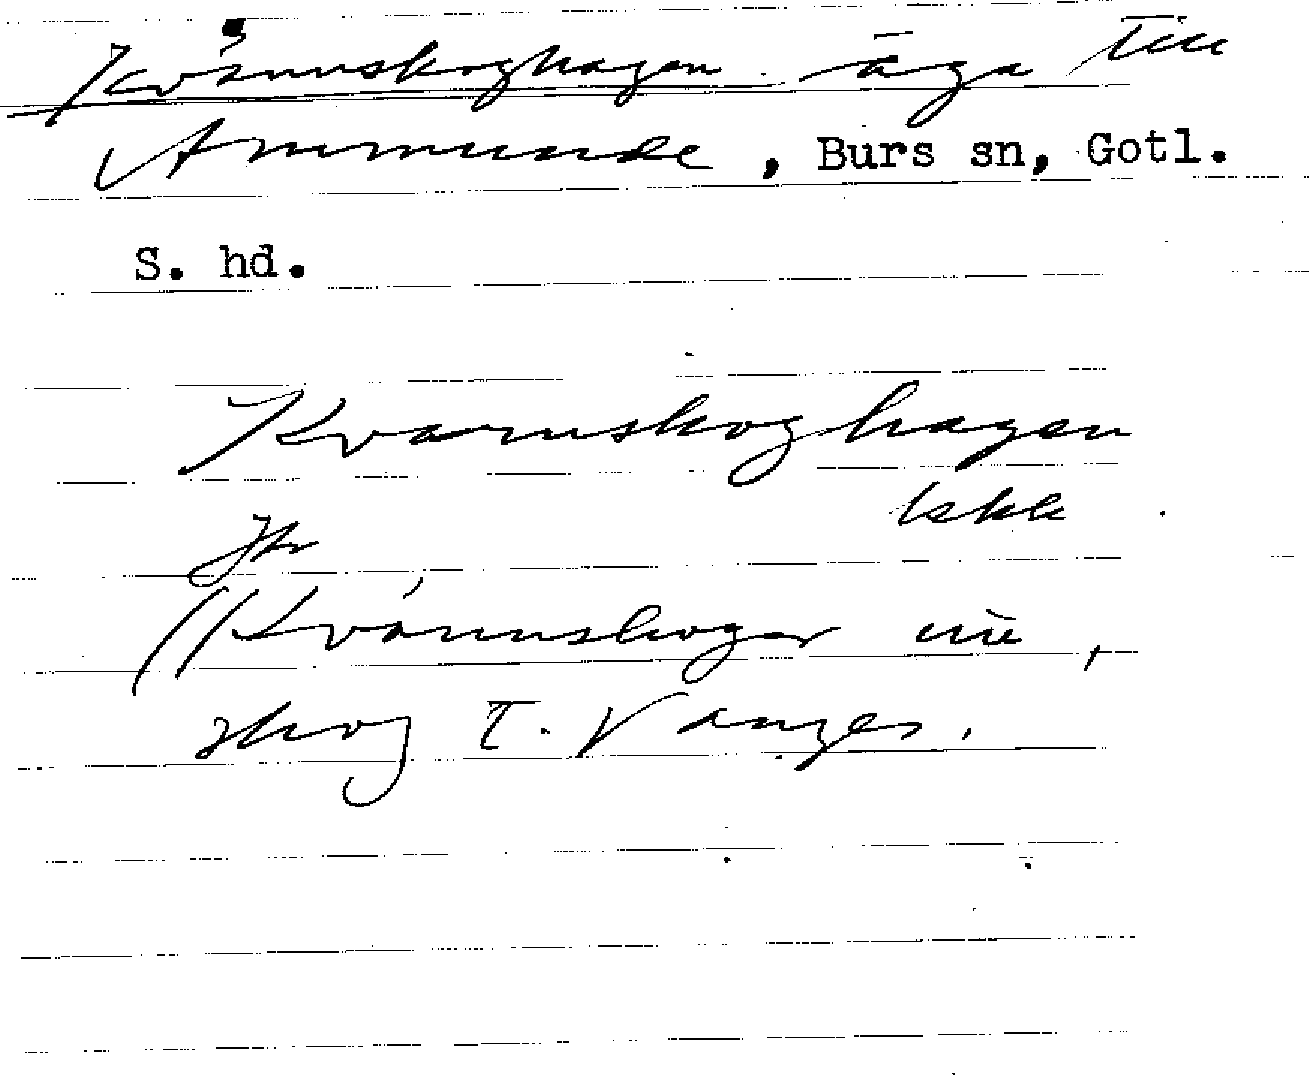 Kvännskoghagen äga till
Ammunde, Burs sn, Gotl.
S. hd.
Kvarnskoghagen
lskk
Jfr
Kvännskogar
skog T. Vanges.